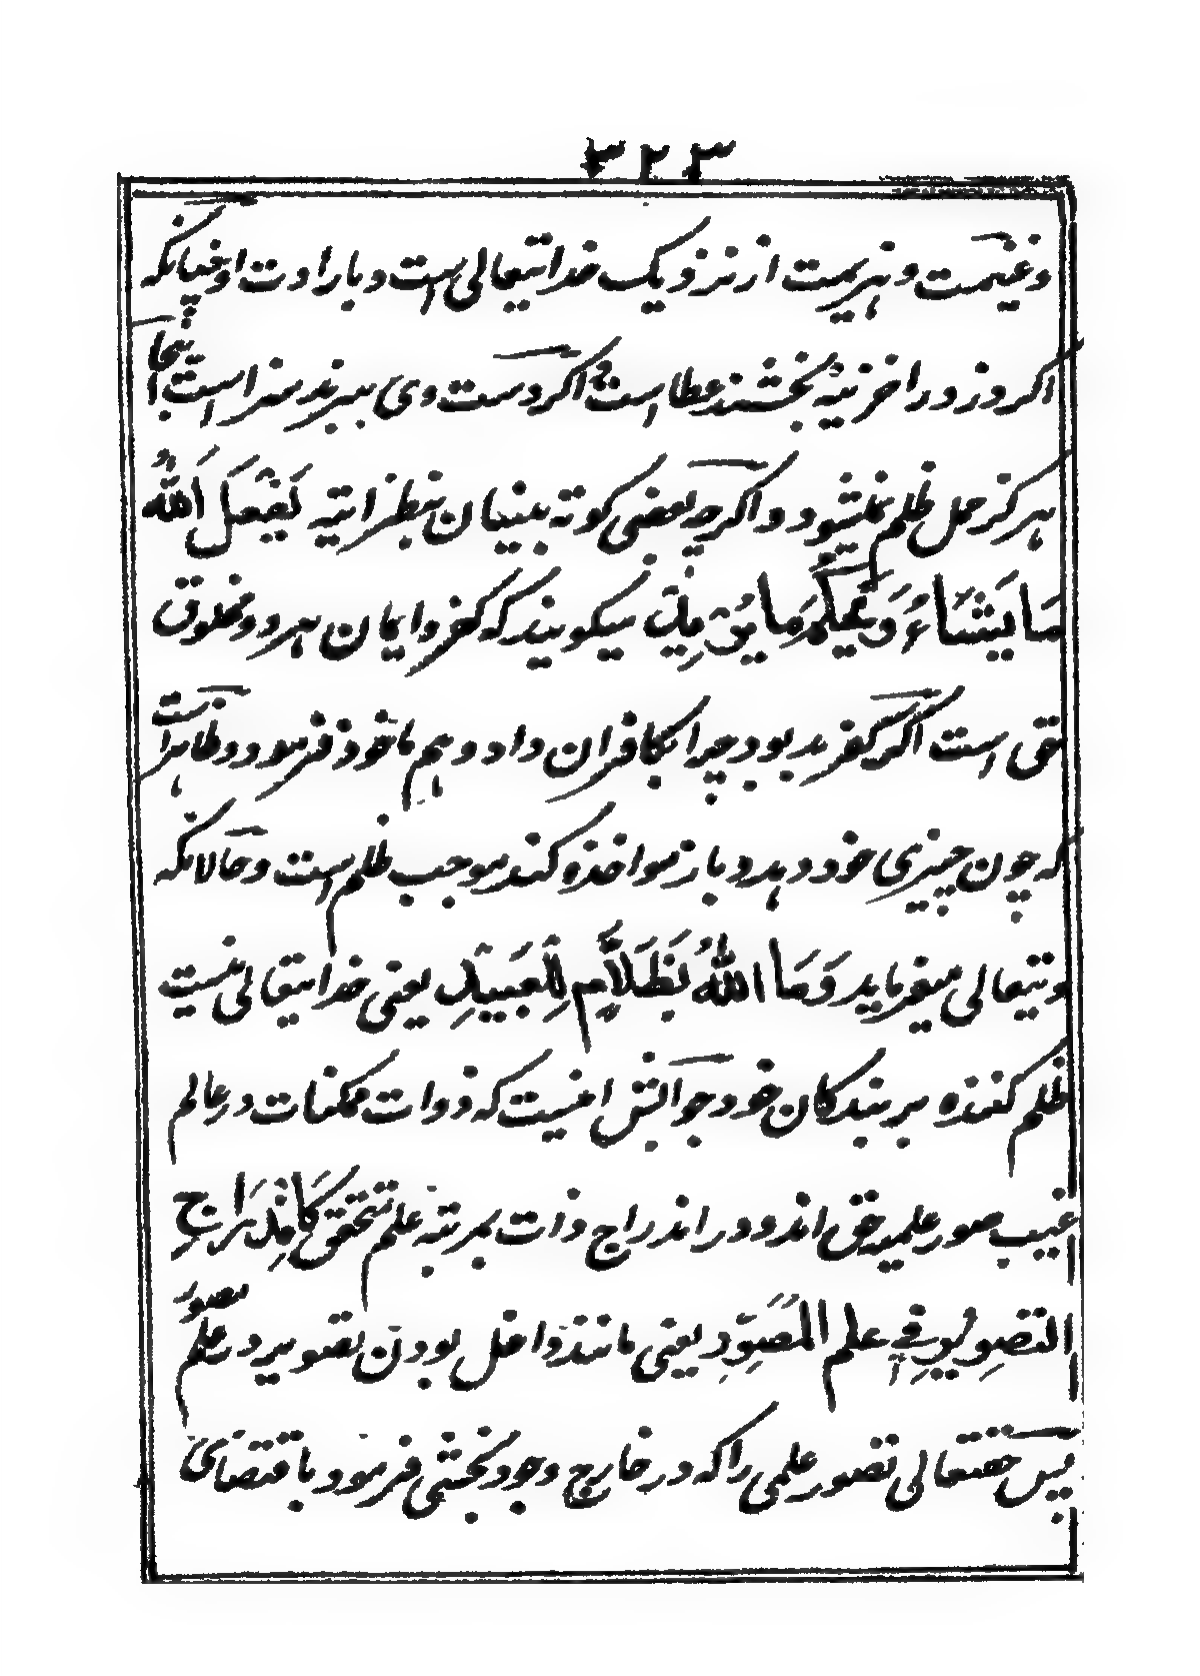 ۳۲۳
و غنیمت و هزیمت از نزدیک خدایتعالی است و بارادت او چنانکه
اگر دزد را خزینهٔ بخشند عطاست و اگر دست وی ببرند سزاست اینجا
هرگز حمل ظلم نمیشود و اگرچه بعضی کوته بینان بنظر اینه یَفْعَلُ اللّٰهُ
مَا یَشَاءُ وَیَحْکُمُ مَا یُرِیدُ میگویند که کفر و ایمان هر دو مخلوق
حق است اگر کفر بد بود چرا بکافران داد و هم ماخوذ فرمود و ظاهر است
که چون چیزی خود دهد و باز مواخذه کند موجب ظلم است و حالانکه
وتیعالی میفرماید وَمَا اللّٰهُ بِظَلَّامٍ لِلْعَبِیدِ یعنی خدایتعالی نیست
ظلم کننده بر بندگان خود جوابش اینست که ذوات ممکنات در عالم
غیب صور علمیه حق اند و در اندراج ذات بمرتبه علم متحقق کَانْدِرَاجِ
التصویر فِی علم المُصَوِّرِ یعنی مانند داخل بودن تصویر در علم مصور
پس حقتعالی تصور علمی را که در خارج وجود بخشی فرمود باقتضای